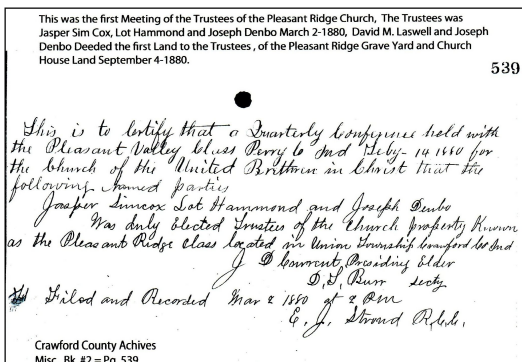 This was the first Meeting of the Trustees of the Pleasant Ridge Church, The Trustees was
Jasper Sim Cox, Lot Hammond and Joseph Denbo March 2-1880, David M. Laswell and Joseph
Denbo Deeded the first Land to the Trustees , of the Pleasant Ridge Grave Yard and Church
House Land September 4-1880.
539
This is to Certify that a Quarterly Conference held with
the Pleasant Valley Class Perry Co Ind Feby- 14 1880 for
the Church of the United Brethren in Christ that the
following named parties
Jasper Simcox Lot Hammond and Joseph Denbo
Was duly Elected Trustees of the Church property Known
as the Pleasant Ridge Class located in Union Township Crawford Co Ind
J D Presiding Elder
D. S. Burr Secty
Filed and Recorded Mar 2 1880 at 2 PM
E. J. Stroud R.C.C.
Crawford County Achives
Misc. Bk. #2 = Pg. 539